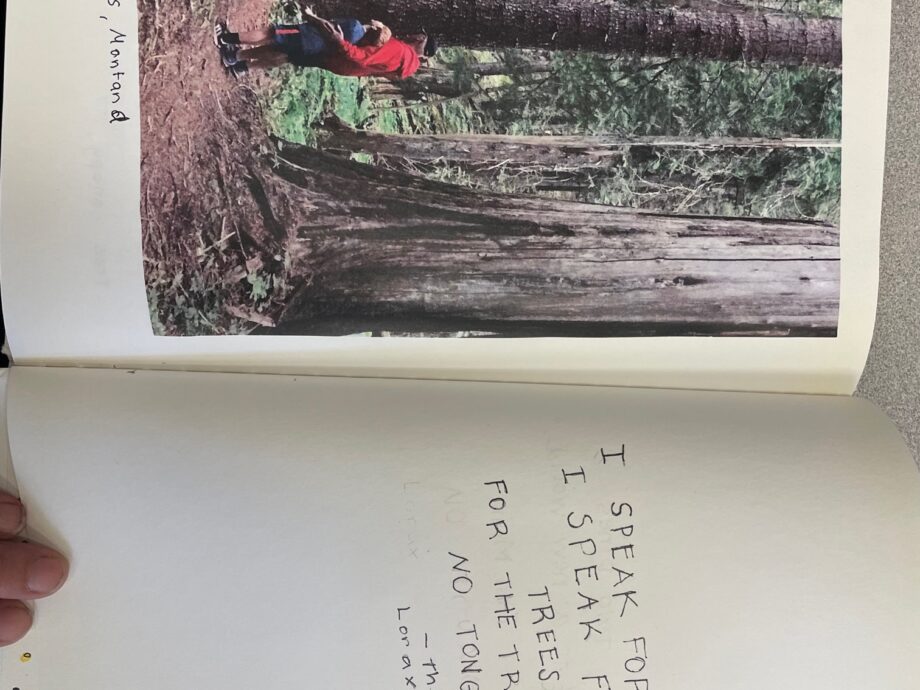 s, Montana
I SPEAK FOR
I SPEAK F
TREES
FOR THE TR
NO TONG
- th
Lorax